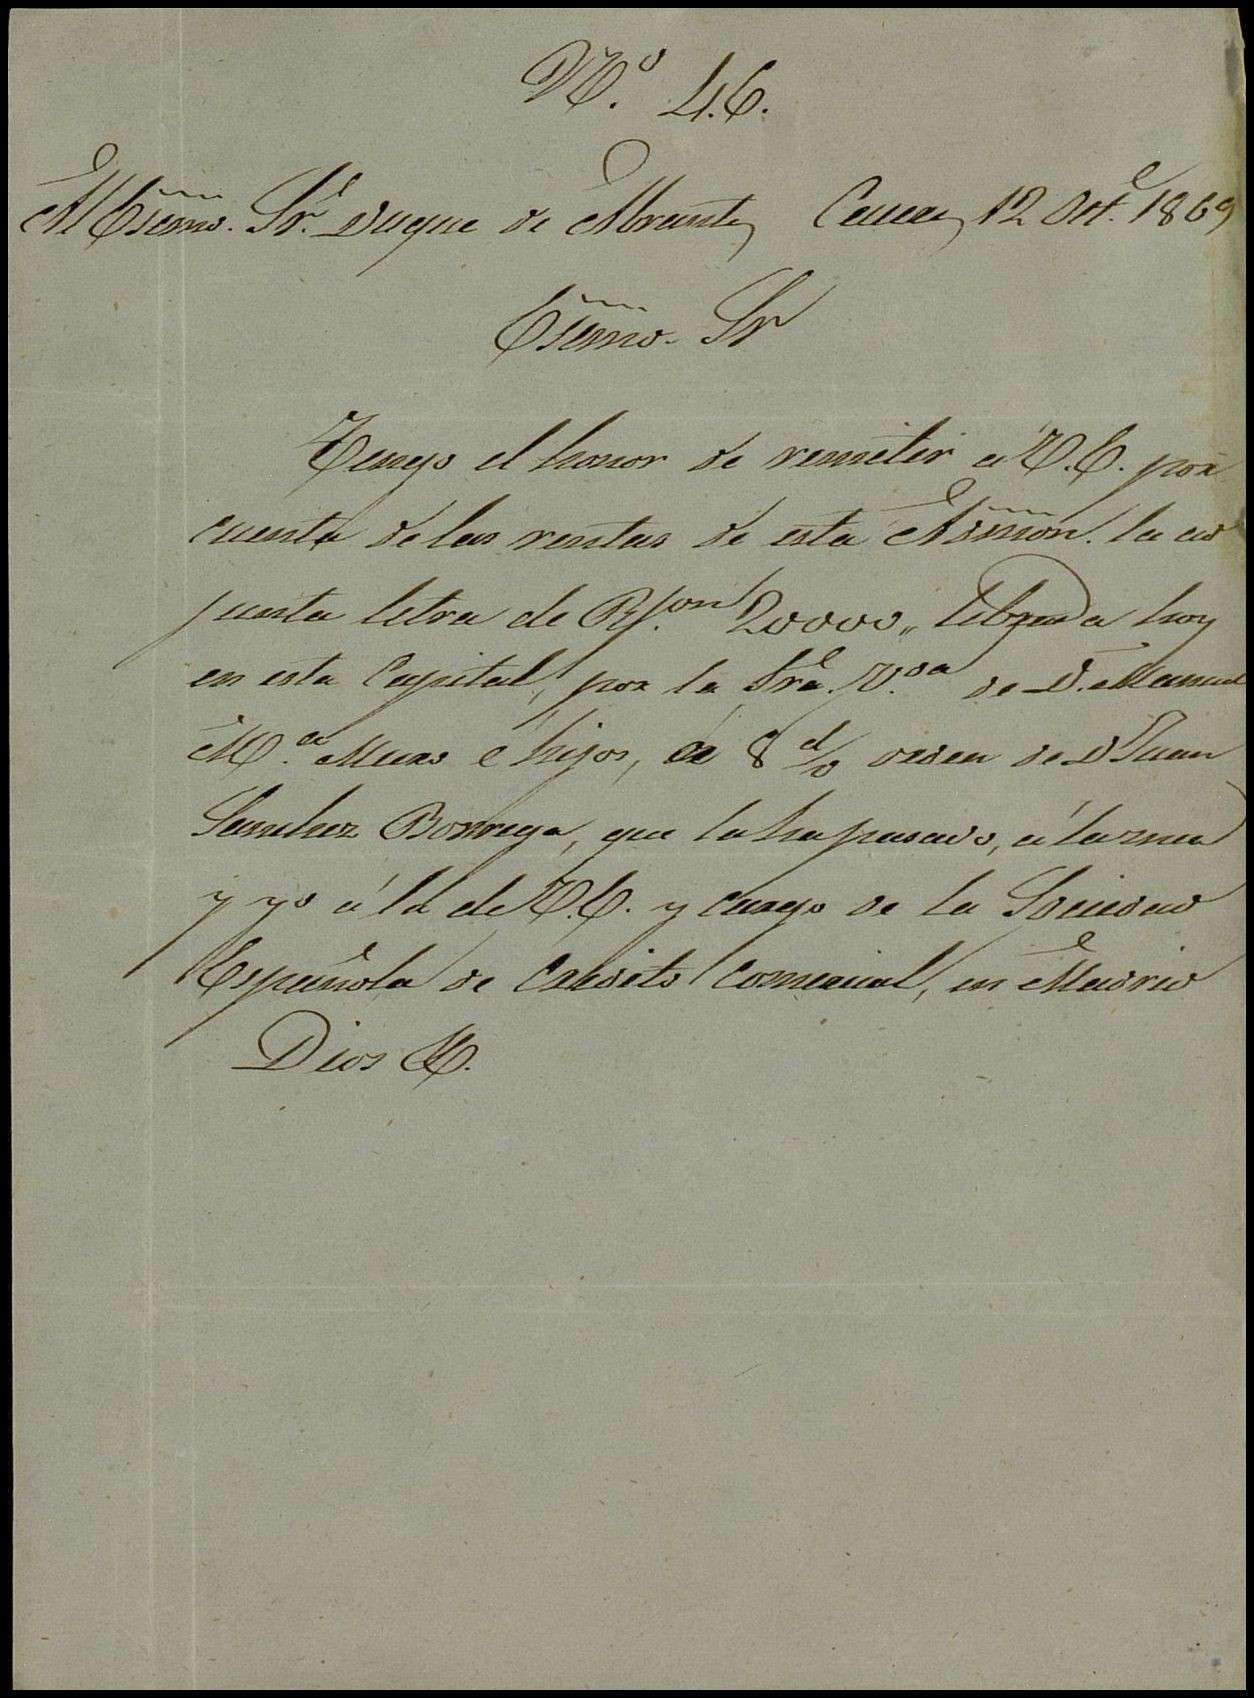 N.º 46.
Al Esêmo. Sr. Duque de Abrantes Caceres 12 Oct.e 1869
Esêmo. Sr
Tengo el honor de remitir a V.E. por
cuenta de las rentas de esta Admon. la ad
junta letra de R.s von 20000,, librada hoy
en esta Capital, por la Sra. V.da de D. Manuel
M.a Muro e hijos, á 8 d/v orden de D Juan
Sanchez Borrega, que la ha pasado, á la mia
y yo á la de V.E. y cargo de la Sociedad
Española de Credito Comercial, en Madrid
Dios &.